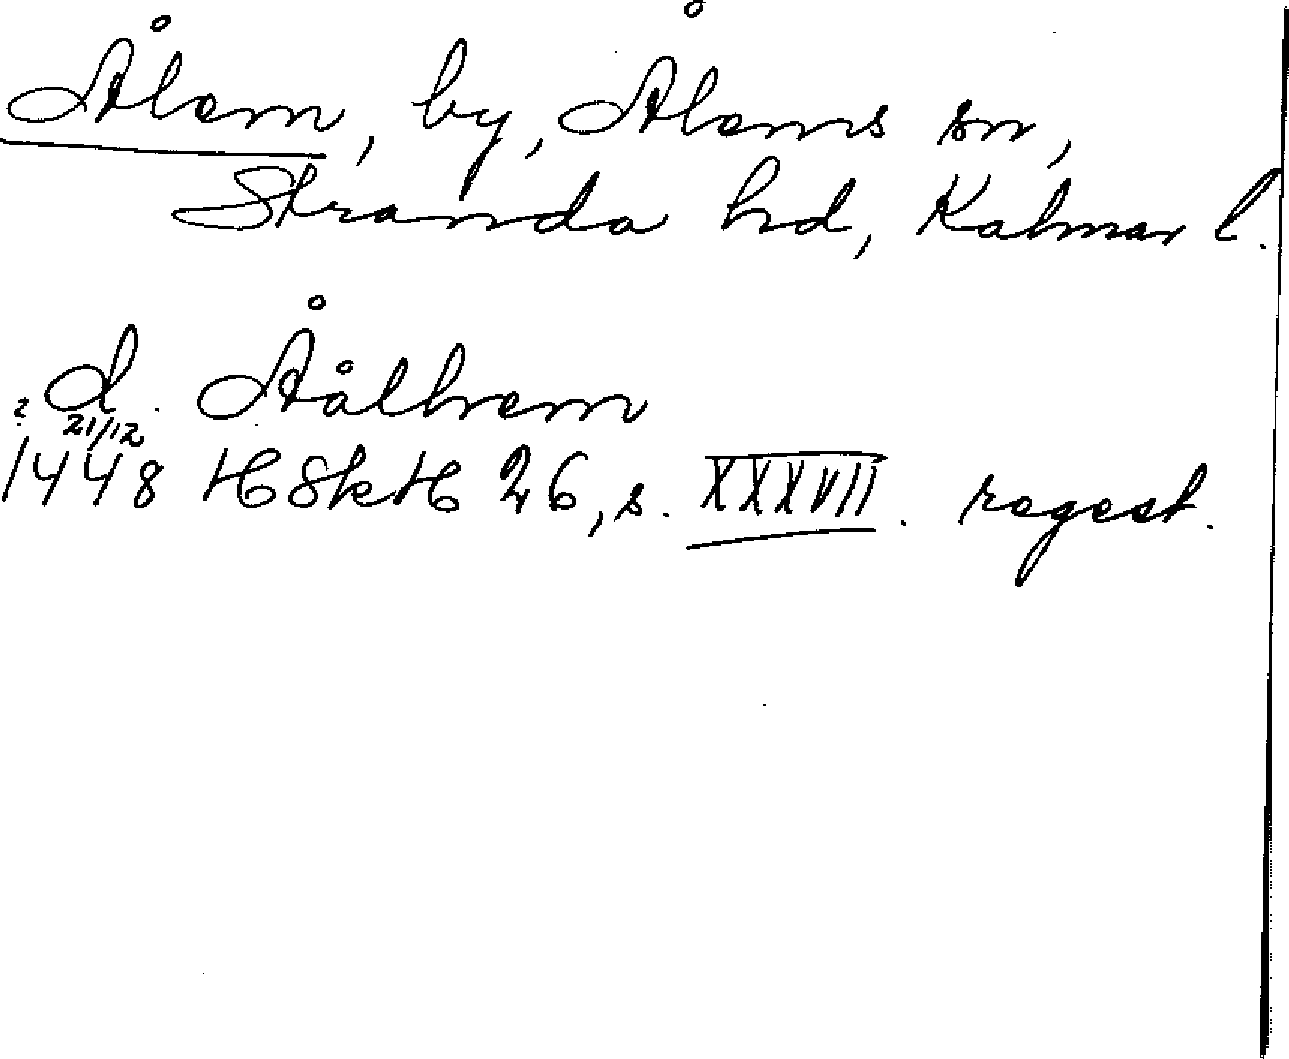 Ålem, by, Ålems sn,
Stranda hd, Kalmar l.
d. Åålhem
? 21/12
1448 HSkH 26, s. XXXVII. regest.